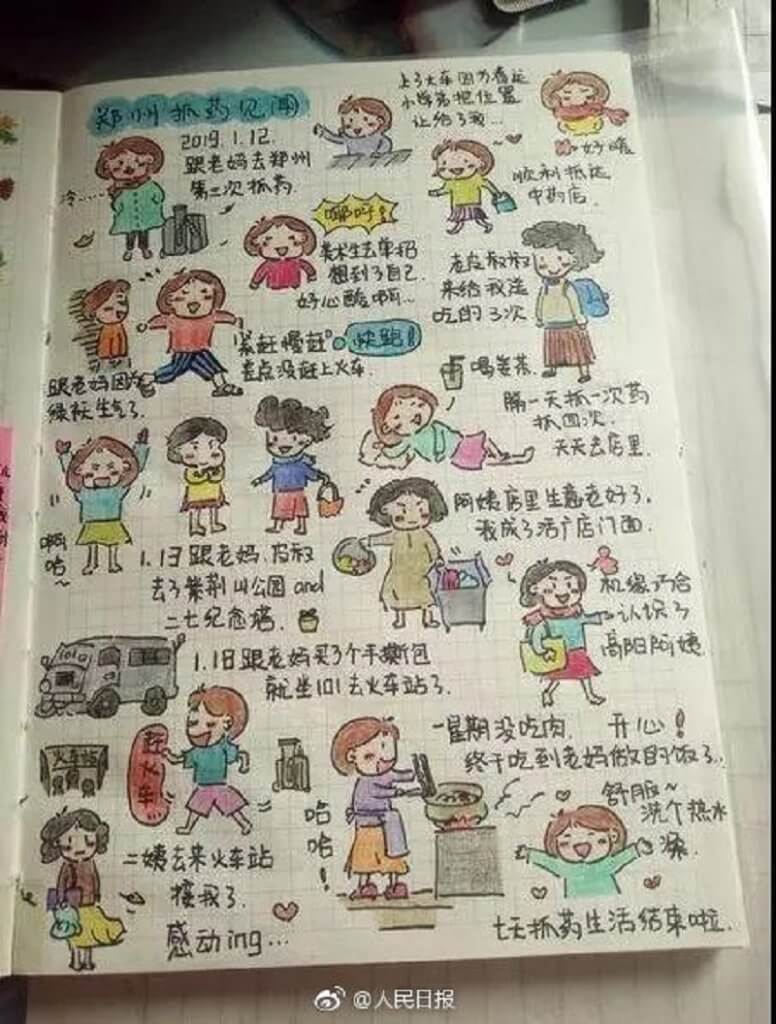 郑州抓药见闻
2019.1.12.
跟老妈去郑州
第二次抓药.
冷……
上了火车因为春运
小学弟把位置
让给了我…
好暖
顺利抵达
中药店.
哪吁!
美术生去单招
想到了自己.
好心酸啊…
老皮叔叔
来给我送
吃的了3次
"紧赶慢赶"
快跑!
差点没赶上火车.
跟老妈因为
绿袄生气了.
喝姜茶.
隔一天抓一次药
抓四次.
天天去店里.
阿姨店里生意老好了.
我成了活广店门面.
啊
哈~
1.1日跟老妈.皮叔
去了紫荆山公园and
二七纪念塔.
机缘巧合
认识了
高阳阿姨.
1.1日跟老妈买了个手撕包
就坐101去火车站了.
火车站
赶火车
一星期没吃肉. 开心!
终于吃到老妈做的饭了..
哈
哈
!
舒服~
洗个热水
澡.
二姨去来火车站
接我了.
感动ing...
七天抓药生活结束啦.
@人民日报